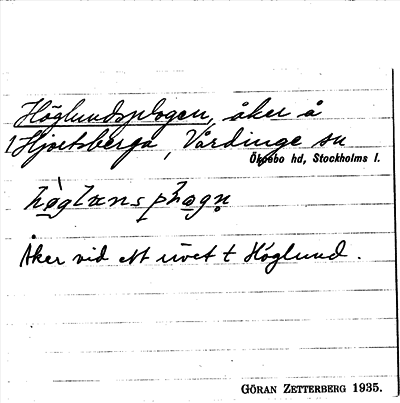 Höglundsplogen, åker å
Hjortsberga, Vårdinge sn
Öknebo hd, Stockholms l.
Åker vid ett rivet t Höglund.
GÖRAN ZETTERBERG 1935.